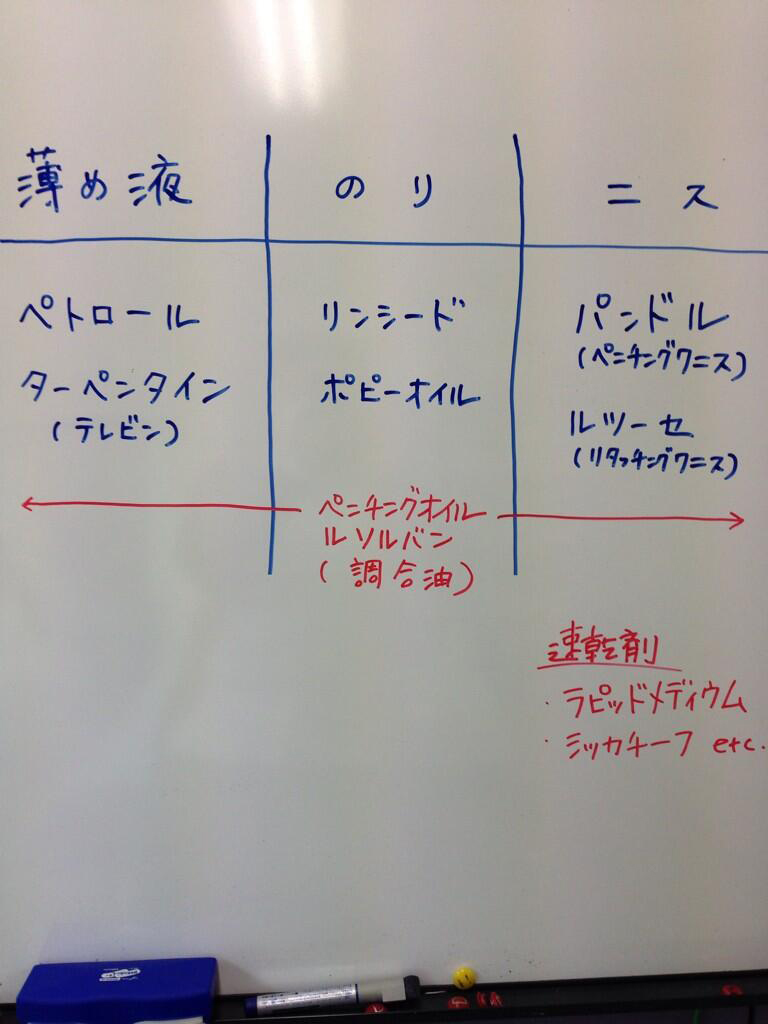 薄め液
のり
ニス
ペトロール
ターペンタイン
(テレビン)
リンシード
ポピーオイル
パンドル
(ペンチングワニス)
ルツーセ
(リタッチングワニス)
ペンチングオイル
ルソルバン
(調合油)
速乾剤
・ラピッドメディウム
・シッカチーフ etc.